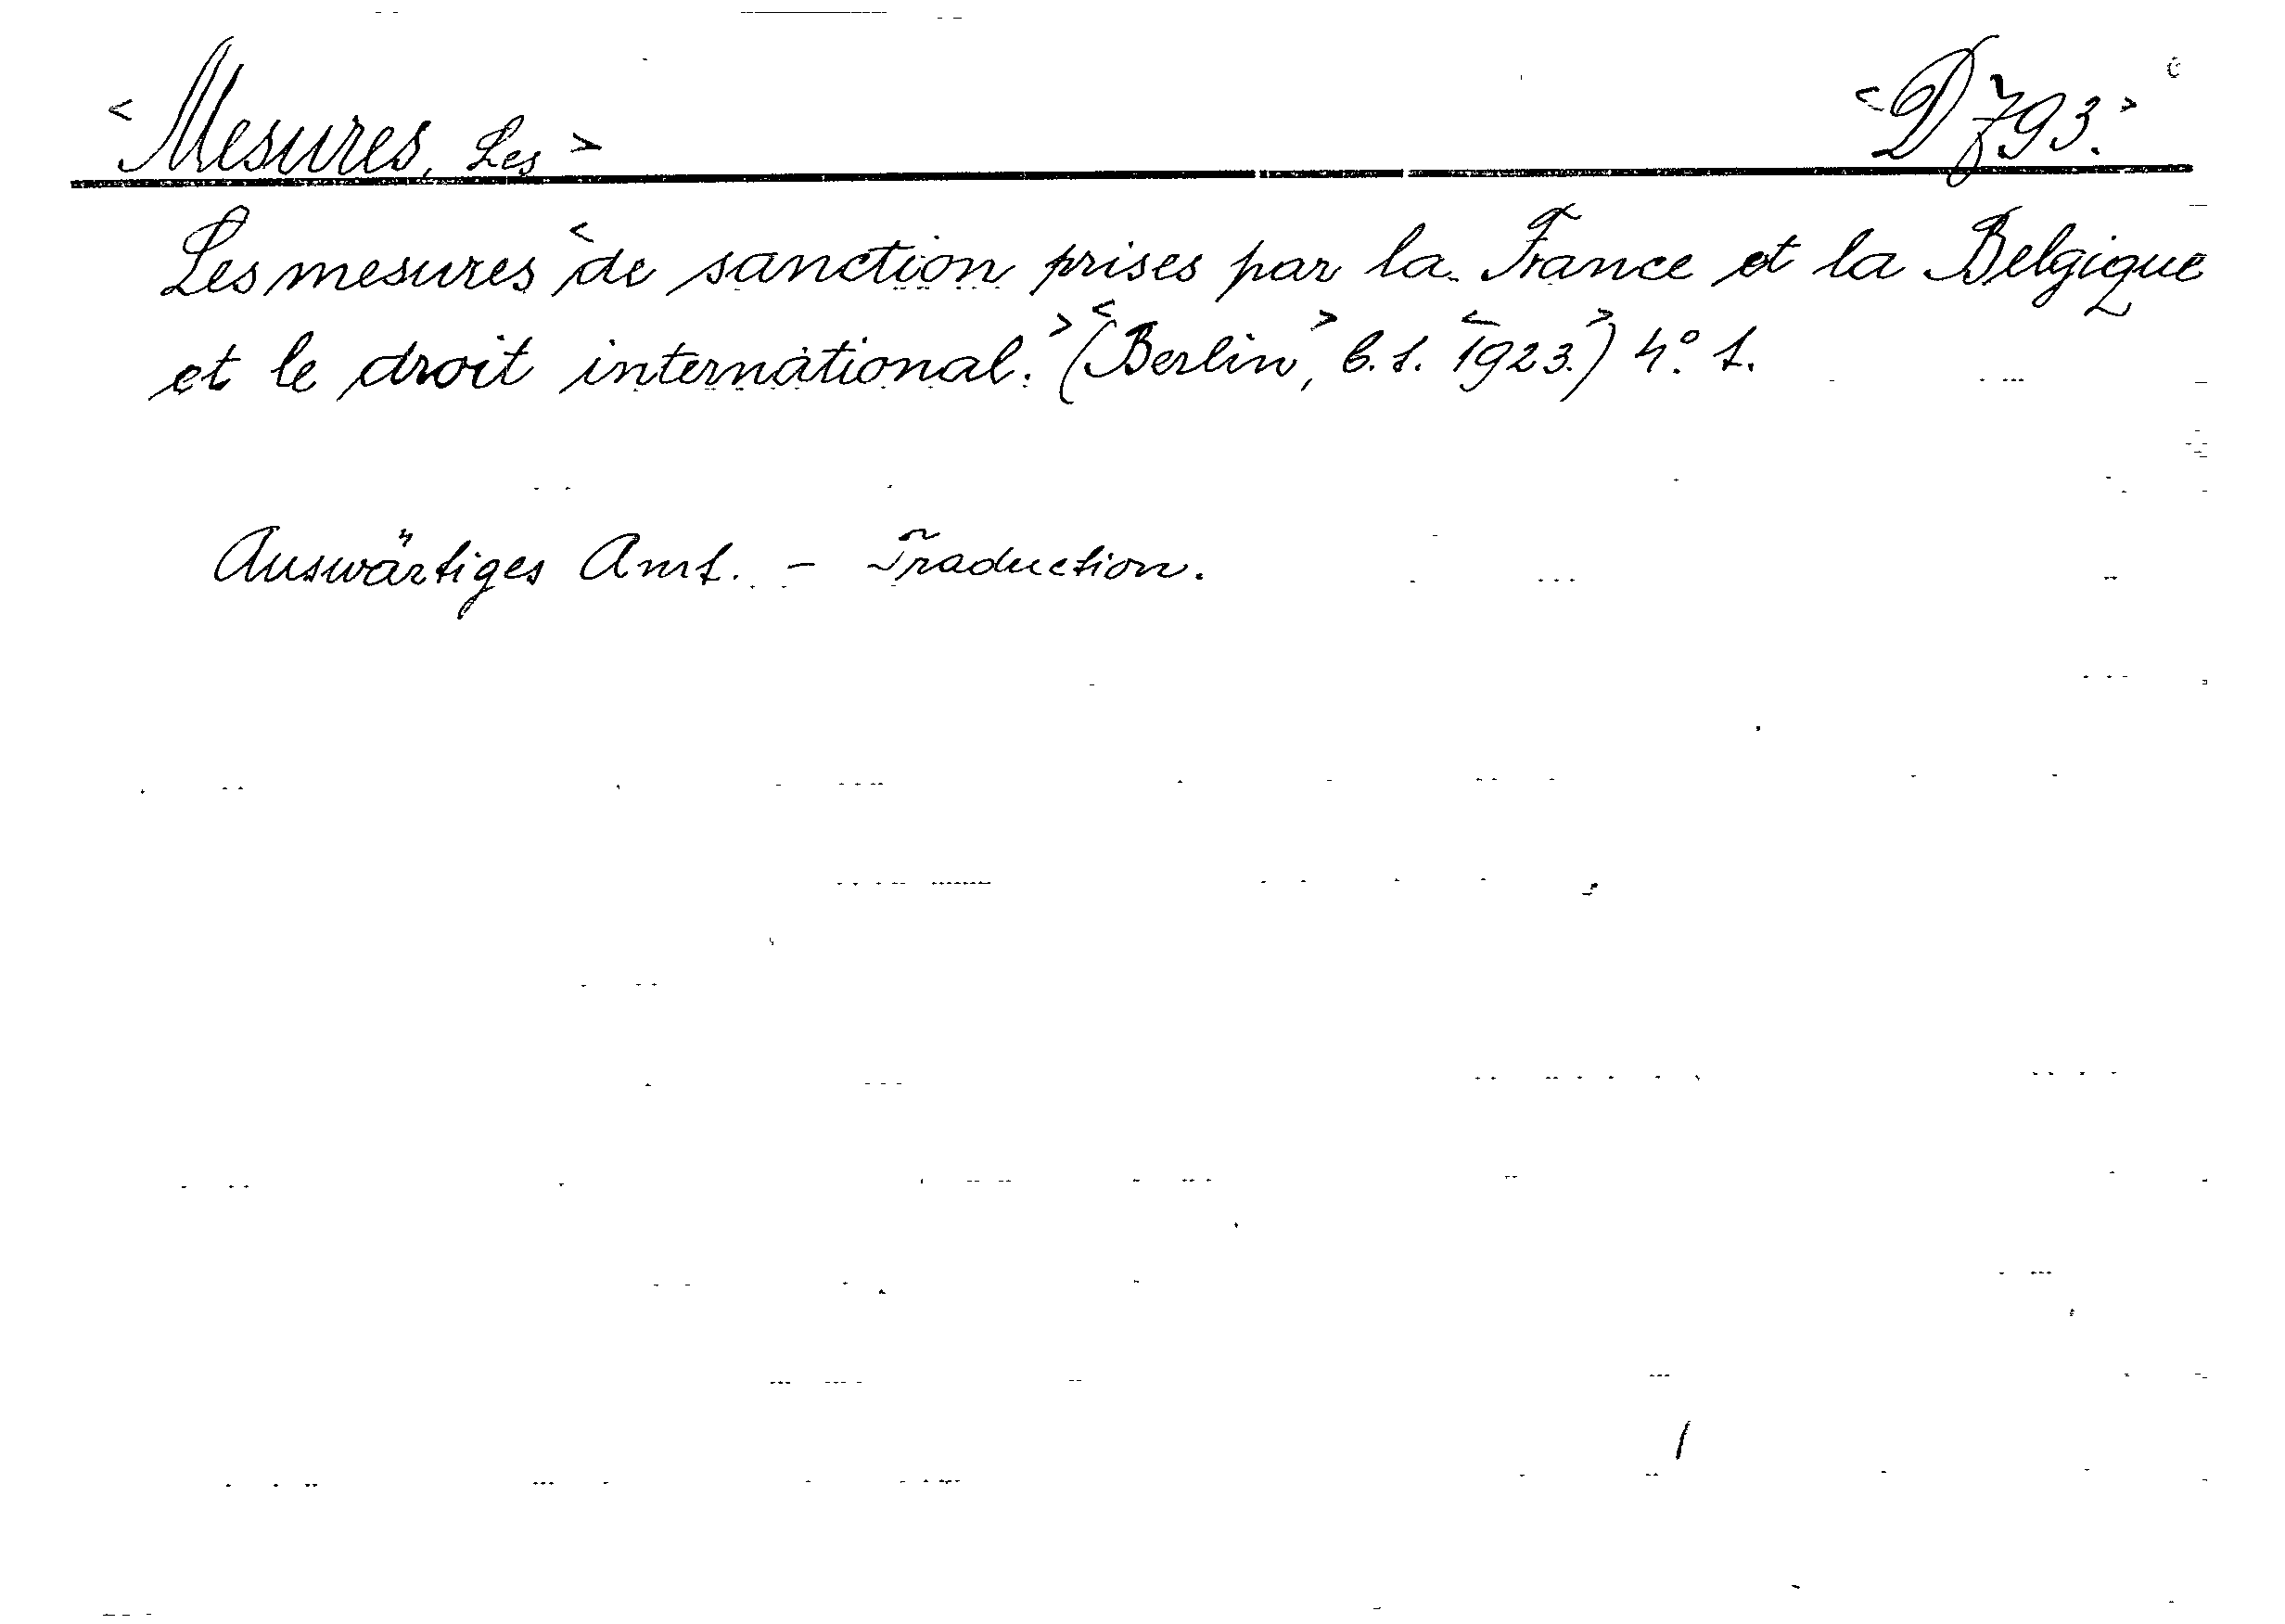 <Mesures, Les> <D 793.>
Les mesures <de sanction prises par la France et la Belgique
et le droit international.> <(Berlin,> b. t. <1923.>) 4° t.
Auswärtiges Amt. - Traduction.